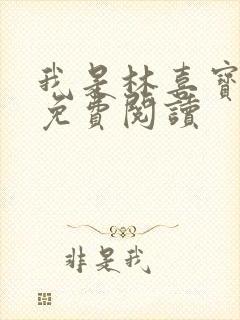 我是林喜寶
免費閱讀
非是我